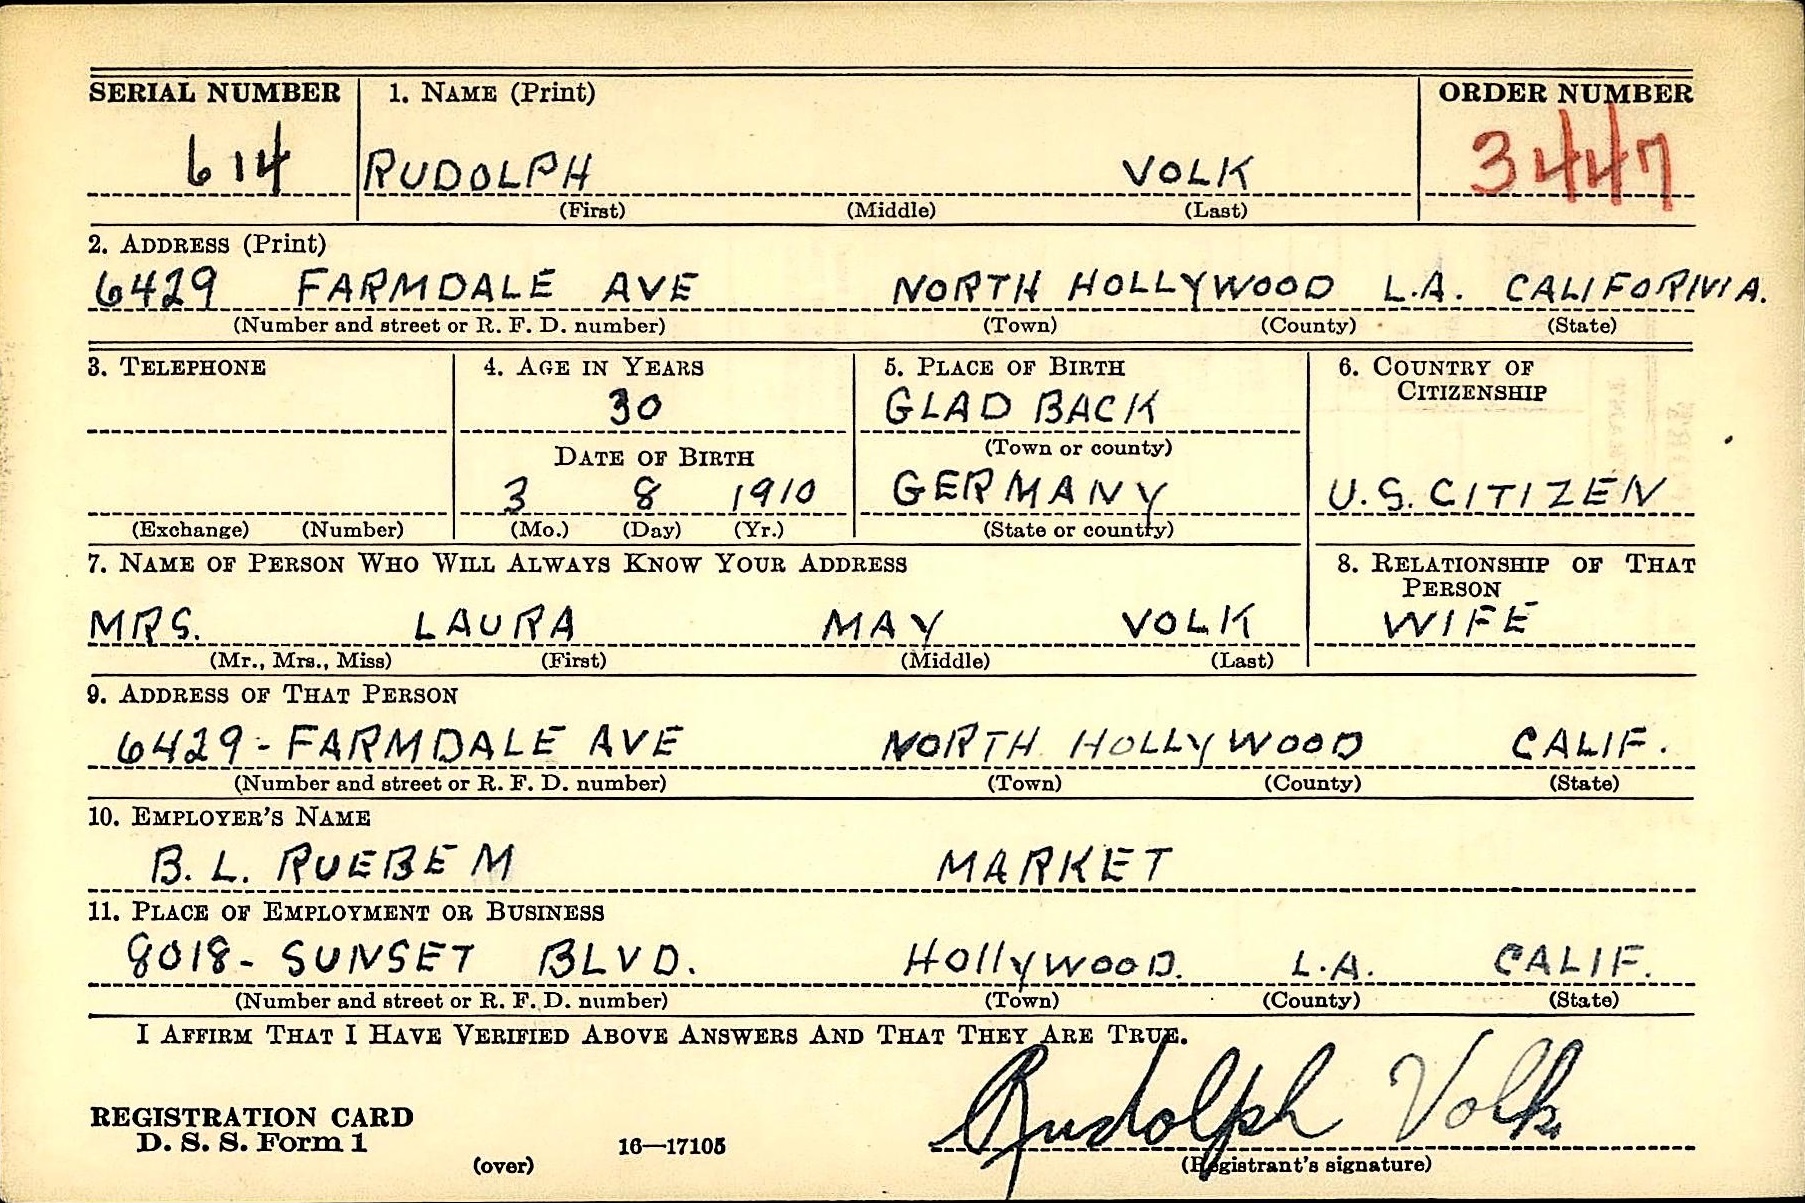 SERIAL NUMBER 1. NAME (Print) ORDER NUMBER
614 RUDOLPH VOLK 3447
(First) (Middle) (Last)
2. ADDRESS (Print)
6429 FARMDALE AVE NORTH HOLLYWOOD L.A. CALIFORNIA.
(Number and street or R. F. D. number) (Town) (County) (State)
3. TELEPHONE 4. AGE IN YEARS 5. PLACE OF BIRTH 6. COUNTRY OF
CITIZENSHIP
30 GLAD BACK
DATE OF BIRTH (Town or county)
3 8 1910 GERMANY U.S. CITIZEN
(Exchange) (Number) (Mo.) (Day) (Yr.) (State or country)
7. NAME OF PERSON WHO WILL ALWAYS KNOW YOUR ADDRESS 8. RELATIONSHIP OF THAT
PERSON
MRS. LAURA MAY VOLK WIFE
(Mr., Mrs., Miss) (First) (Middle) (Last)
9. ADDRESS OF THAT PERSON
6429 - FARMDALE AVE NORTH HOLLYWOOD CALIF.
(Number and street or R. F. D. number) (Town) (County) (State)
10. EMPLOYER'S NAME
B. L. RUEBEM MARKET
11. PLACE OF EMPLOYMENT OR BUSINESS
8018 - SUNSET BLVD. HOllYWOOD. L.A. CALIF.
(Number and street or R. F. D. number) (Town) (County) (State)
I AFFIRM THAT I HAVE VERIFIED ABOVE ANSWERS AND THAT THEY ARE TRUE.
Rudolph Volk
REGISTRATION CARD
D. S. S. Form 1 16—17105
(over) (Registrant's signature)